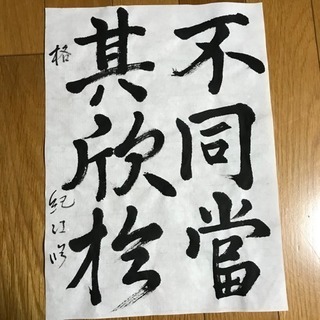 不同當
其欣於
格 紀江